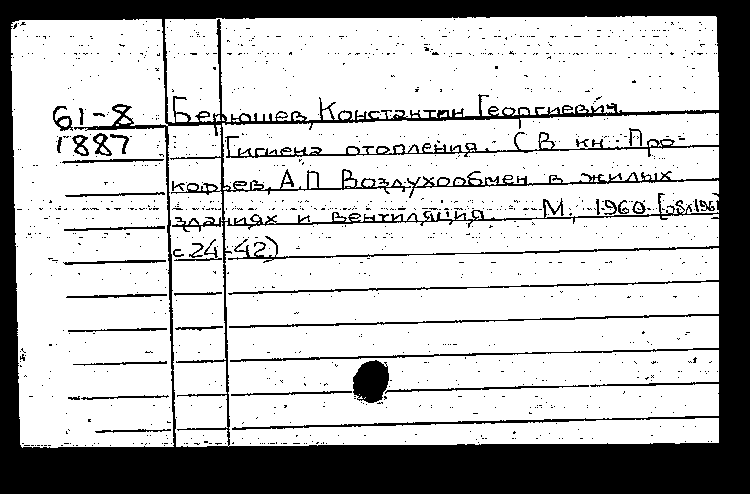 61-8 Берюшев, Константин Георгиевич.
1887 Гигиена отопления. (В кн.: Про-
кофьев, А.П Воздухообмен в жилых
зданиях и вентиляция. М., 1960 [обл.1961]
с.24-42)